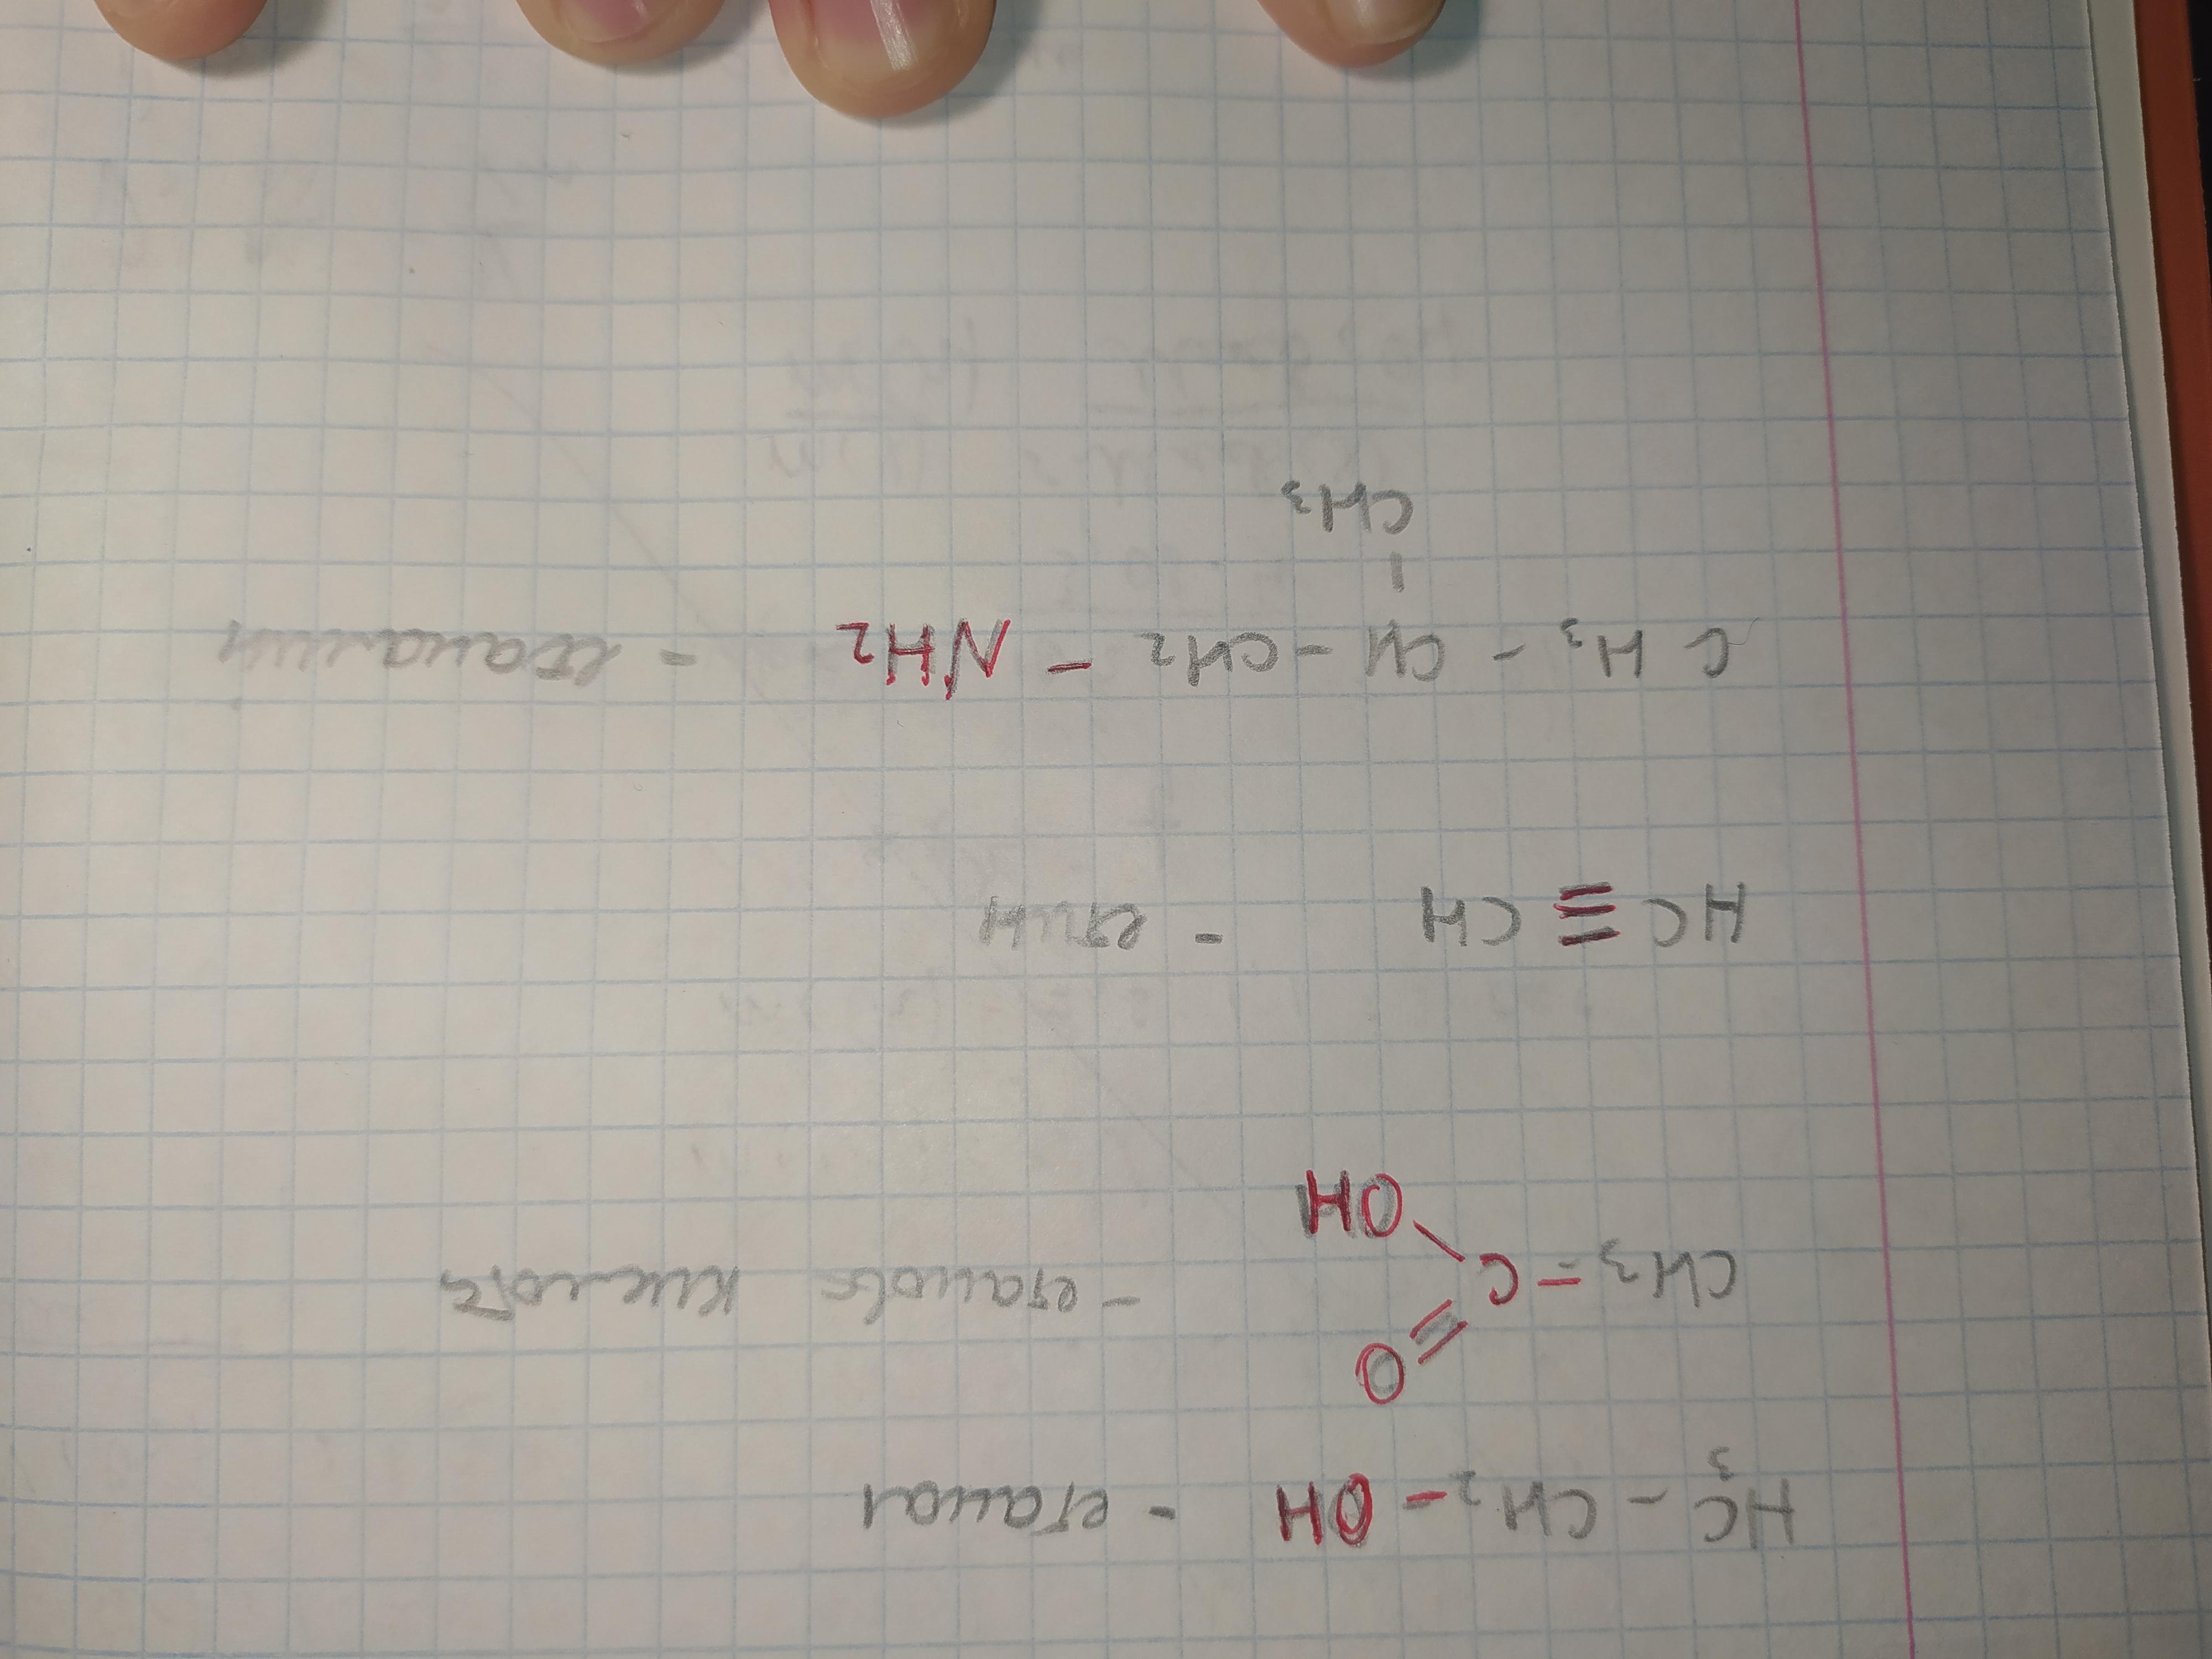 H₃C - CH₂ - OH - етанол
O
CH₃ - C - етанова кислота
OH
HC ≡ CH - етин
CH₃ - CH - CH₂ - NH₂ - етанамин
CH₃